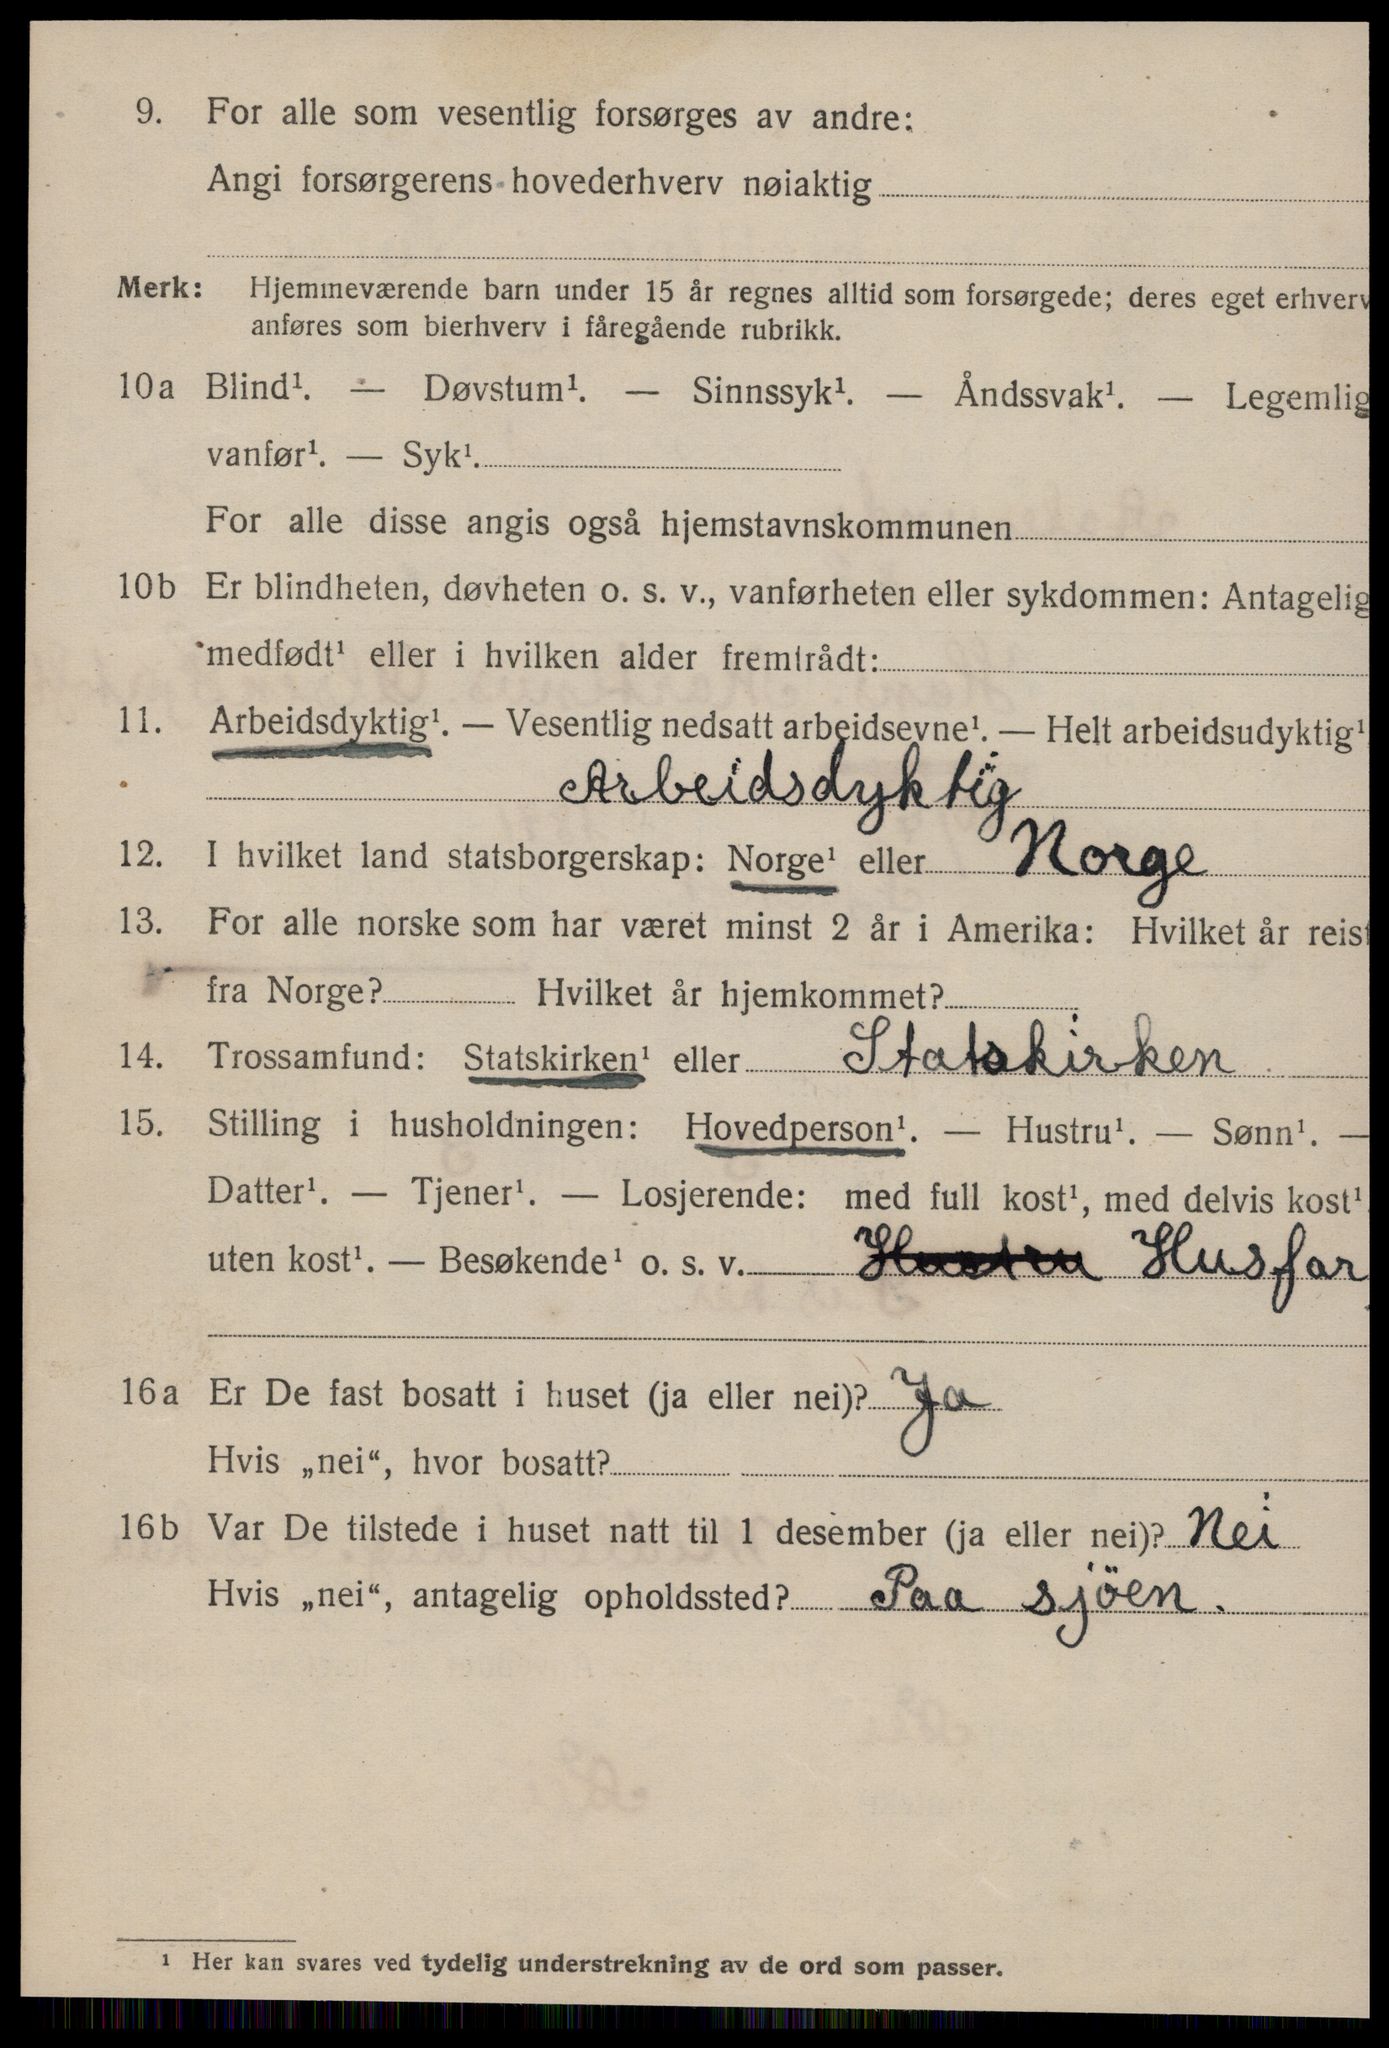 9. For alle som vesentlig forsørges av andre:
Angi forsørgerens hovederhverv nøiaktig
Merk: Hjemmeværende barn under 15 år regnes alltid som forsørgede; deres eget erhverv
anføres som bierhverv i føregående rubrikk.
10a Blind¹. — Døvstum¹. — Sinnssyk¹. — Åndssvak¹. — Legemlig
vanfør¹. — Syk¹.
For alle disse angis også hjemstavnskommunen
10b Er blindheten, døvheten o. s. v., vanførheten eller sykdommen: Antagelig
medfødt¹ eller i hvilken alder fremtrådt:
11. Arbeidsdyktig¹. — Vesentlig nedsatt arbeidsevne¹. — Helt arbeidsudyktig¹
Arbeidsdyktig
12. I hvilket land statsborgerskap: Norge¹ eller Norge
13. For alle norske som har været minst 2 år i Amerika: Hvilket år reist
fra Norge? Hvilket år hjemkommet?
14. Trossamfund: Statskirken¹ eller Statskirken
15. Stilling i husholdningen: Hovedperson¹. — Hustru¹. — Sønn¹. —
Datter¹. — Tjener¹. — Losjerende: med full kost¹, med delvis kost¹,
uten kost¹. — Besøkende¹ o. s. v. Hustru Husfar
16a Er De fast bosatt i huset (ja eller nei)? Ja
Hvis „nei“, hvor bosatt?
16b Var De tilstede i huset natt til 1 desember (ja eller nei)? Nei
Hvis „nei“, antagelig opholdssted? Paa sjöen.
¹ Her kan svares ved tydelig understrekning av de ord som passer.